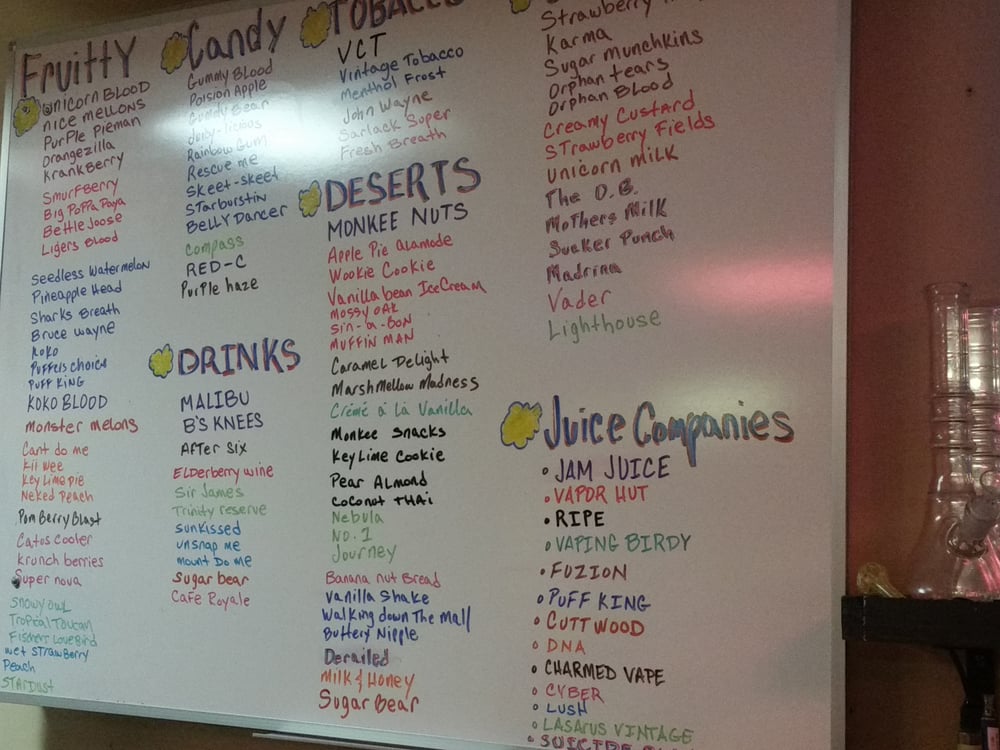 Fruitty
UNICORN BLOOD
NICE MELLONS
PurPle Pieman
Orangezilla
KrankBerry
SmurFBerry
Big PoPPa Paya
Bettle Joose
Ligers Blood
Seedless Watermelon
Pineapple Head
Sharks Breath
Bruce wayne
KoKo
Puffers choice
PUFF KING
KOKO BLOOD
Monster melons
Cant do me
Kii wee
Key Lime pie
Neked Peach
Pom Berry Blast
Catus Cooler
Krunch berries
Super nova
Snowy owl
Tropical Toucan
Fischers LoveBird
wet STrawBerry
Peach
STARDUST
Candy
Gummy Blood
Poision Apple
Gummy Bear
Juicy-licious
Rainbow Gum
Rescue me
Skeet-skeet
STarburstin
BeLLY Dancer
Compass
RED-C
PurPle haze
DRINKS
MALIBU
B'S KNEES
AFTer Six
ELDerberry wine
Sir James
Trinity reserve
SunKissed
unsnap me
mount Do me
Sugar bear
Cafe Royale
TOBACCO
VCT
Vintage Tobacco
Menthol Frost
John Wayne
Sarlack Super
Fresh Breath
DESERTS
MONKEE NUTS
Apple Pie alamode
Wookie Cookie
Vanilla bean IceCream
MOSSY OAK
Sin-a-BON
MUFFIN MAN
Caramel Delight
MarshMellow Madness
Crémé a La Vanilla
Monkee Snacks
Key Lime Cookie
Pear Almond
Coconut THAi
Nebula
NO. 1
Journey
Banana nut Bread
Vanilla Shake
Walking down The Mall
Buttery Nipple
Derailed
Milk & Honey
Sugar Bear
Strawberry
Karma
Sugar munchkins
Orphan tears
Orphan Blood
Creamy Custard
STrawberry Fields
Unicorn milk
The O.B.
Mothers Milk
Sucker Punch
Madrina
Vader
Lighthouse
Juice Companies
• JAM JUICE
• VAPOR HUT
• RIPE
• VAPING BIRDY
• FUZION
• PUFF KING
• CUTTWOOD
• DNA
• CHARMED VAPE
• CYBER
• LUSH
• LASARUS VINTAGE
• SUICIDE